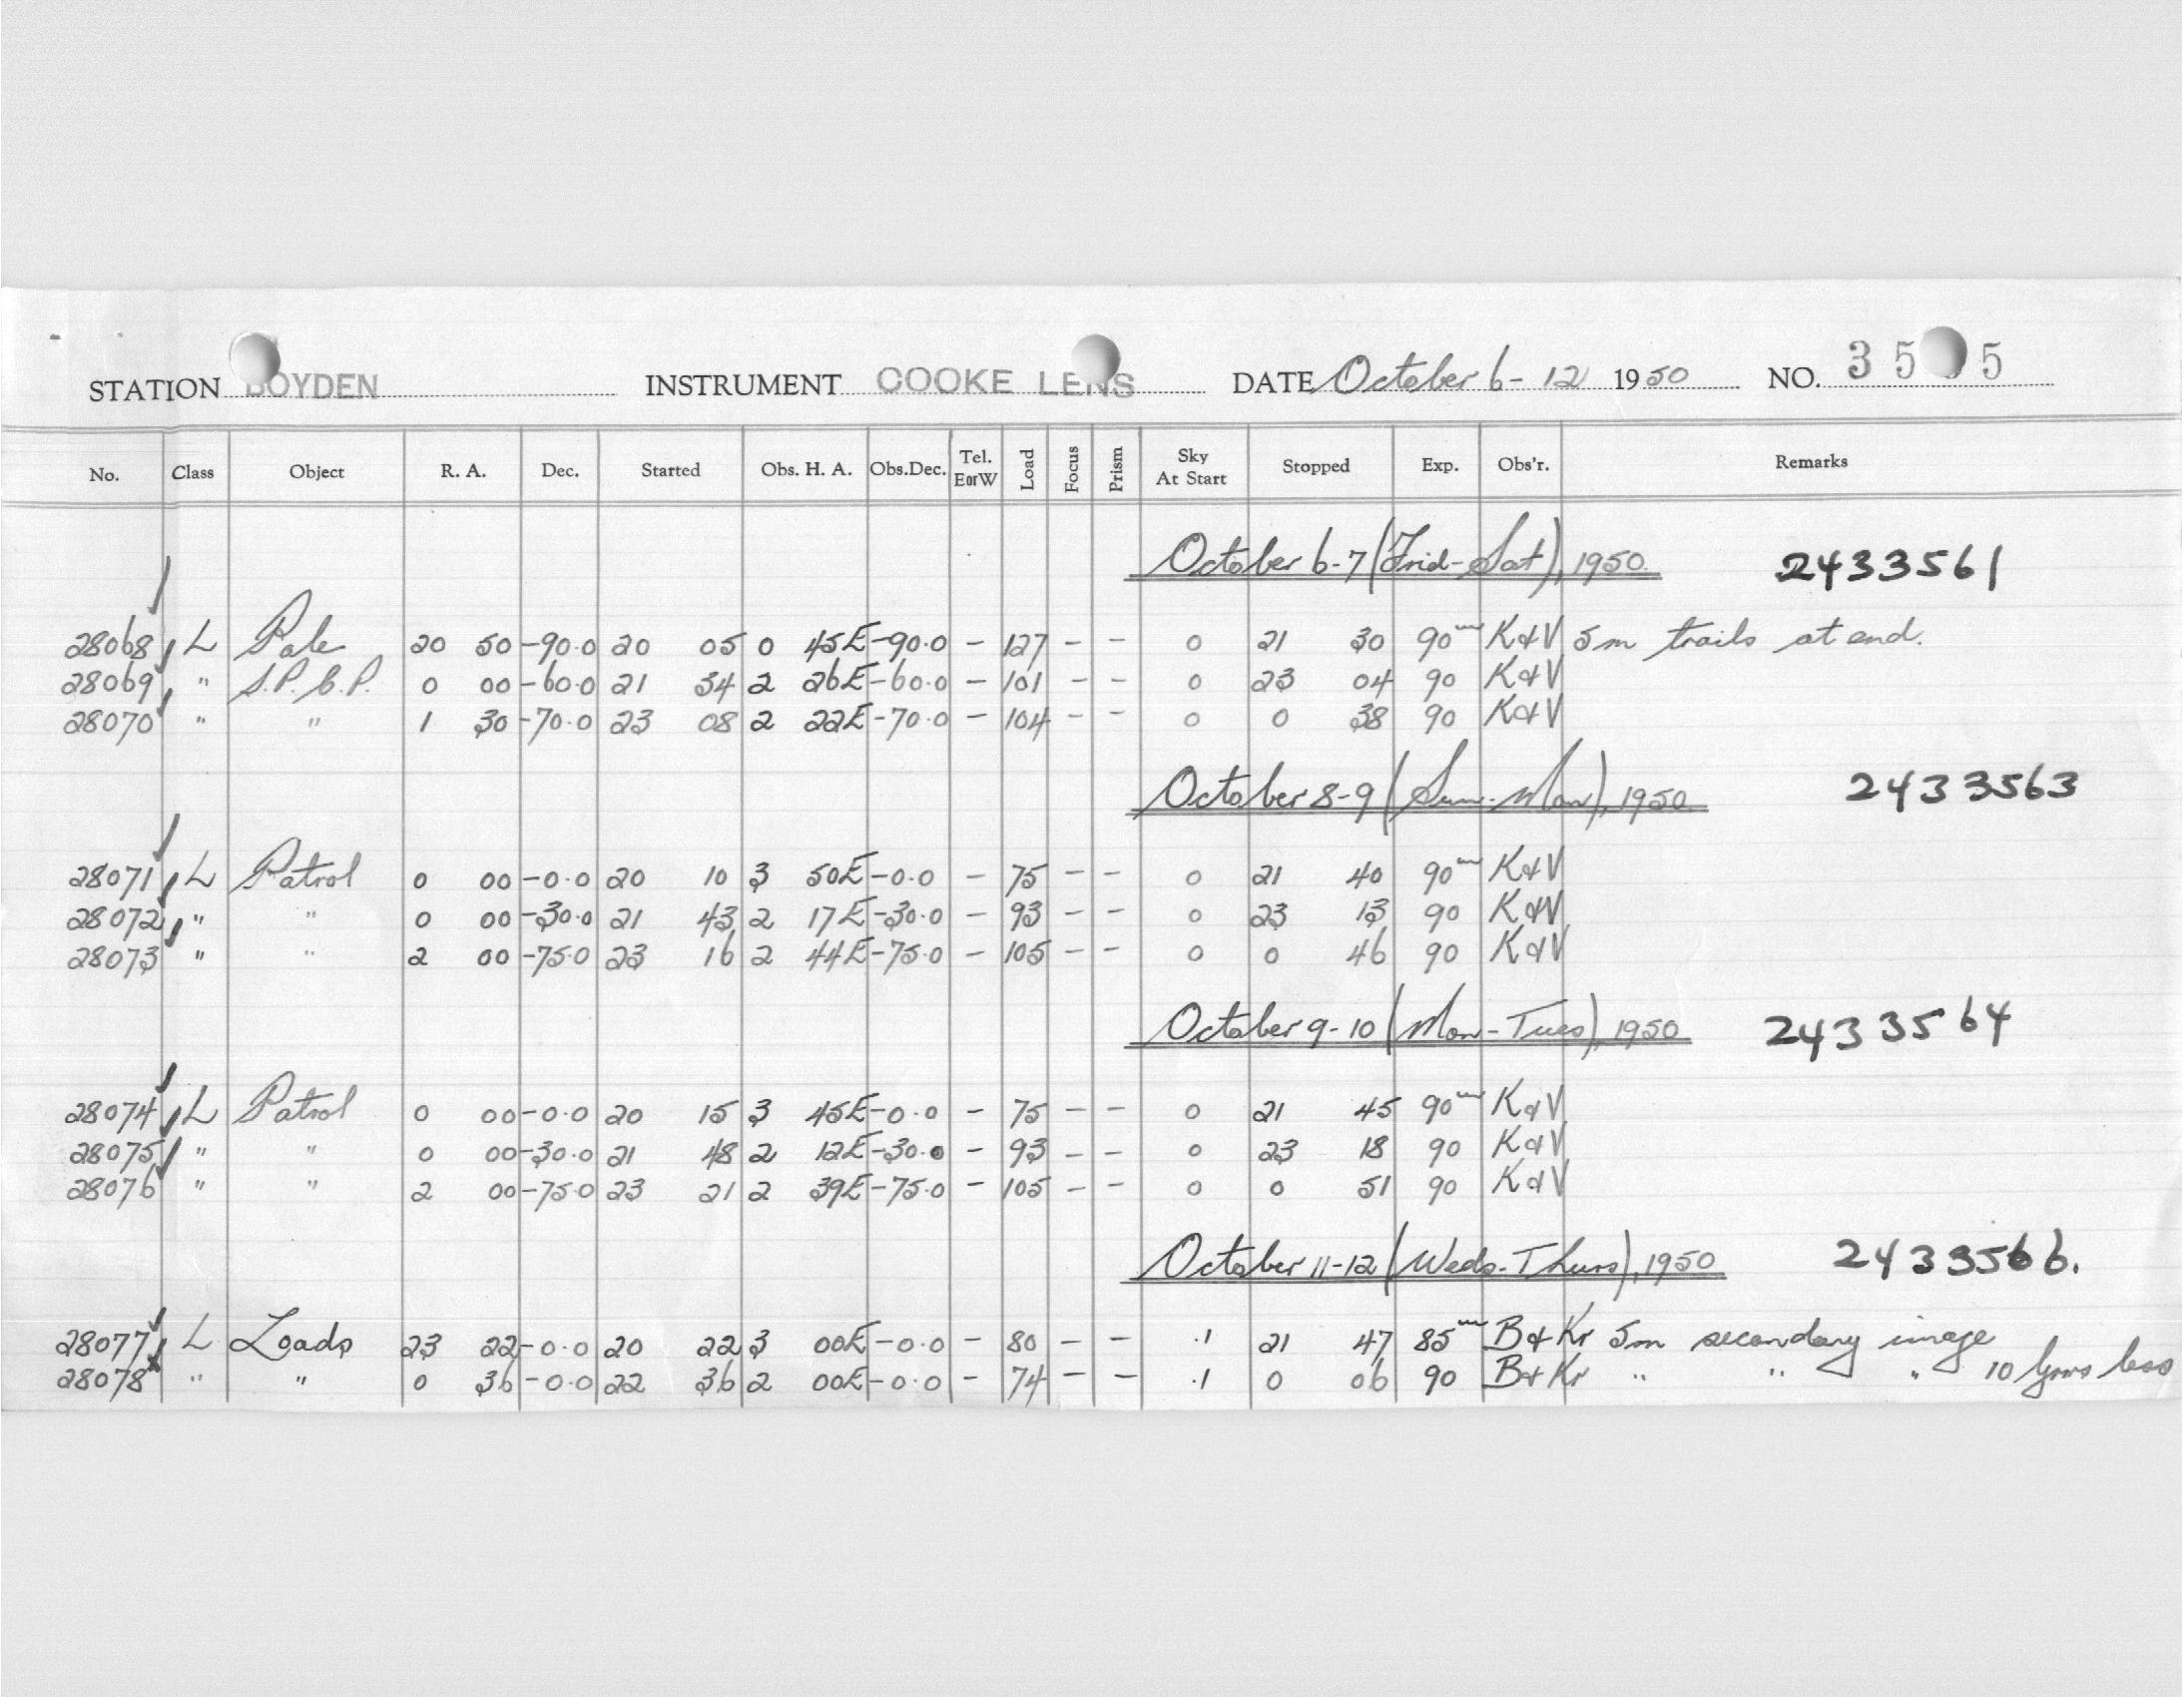 STATION BOYDEN INSTRUMENT COOKE LENS DATE October 6-12 1950 NO. 35 5
No. Class Object R. A. Dec. Started Obs. H. A. Obs.Dec. Tel. E or W Load Focus Prism Sky At Start Stopped Exp. Obs'r. Remarks
October 6-7 (Frid-Sat), 1950. 2433561
28068 L Pole 20 50 -90.0 20 05 0 45E -90.0 - 127 - - 0 21 30 90m K&V 5m trails at end.
28069 " S.P.C.P. 0 00 -60.0 21 34 2 26E -60.0 - 101 - - 0 23 04 90 K&V
28070 " " 1 30 -70.0 23 08 2 22E -70.0 - 104 - - 0 0 38 90 K&V
October 8-9 (Sun-Mon), 1950. 2433563
28071 L Patrol 0 00 -0.0 20 10 3 50E -0.0 - 75 - - 0 21 40 90m K&V
28072 " " 0 00 -30.0 21 43 2 17E -30.0 - 93 - - 0 23 13 90 K&V
28073 " " 2 00 -75.0 23 16 2 44E -75.0 - 105 - - 0 0 46 90 K&V
October 9-10 (Mon-Tues), 1950 2433564
28074 L Patrol 0 00 -0.0 20 15 3 45E -0.0 - 75 - - 0 21 45 90m K&V
28075 " " 0 00 -30.0 21 48 2 12E -30.0 - 93 - - 0 23 18 90 K&V
28076 " " 2 00 -75.0 23 21 2 39E -75.0 - 105 - - 0 0 51 90 K&V
October 11-12 (Weds-Thurs), 1950 2433566.
28077 L Loads 23 22 -0.0 20 22 3 00E -0.0 - 80 - - .1 21 47 85m B&Kr 5m secondary image
28078 " " 0 36 -0.0 22 36 2 00E -0.0 - 74 - - .1 0 06 90 B&Kr " " " 10 less